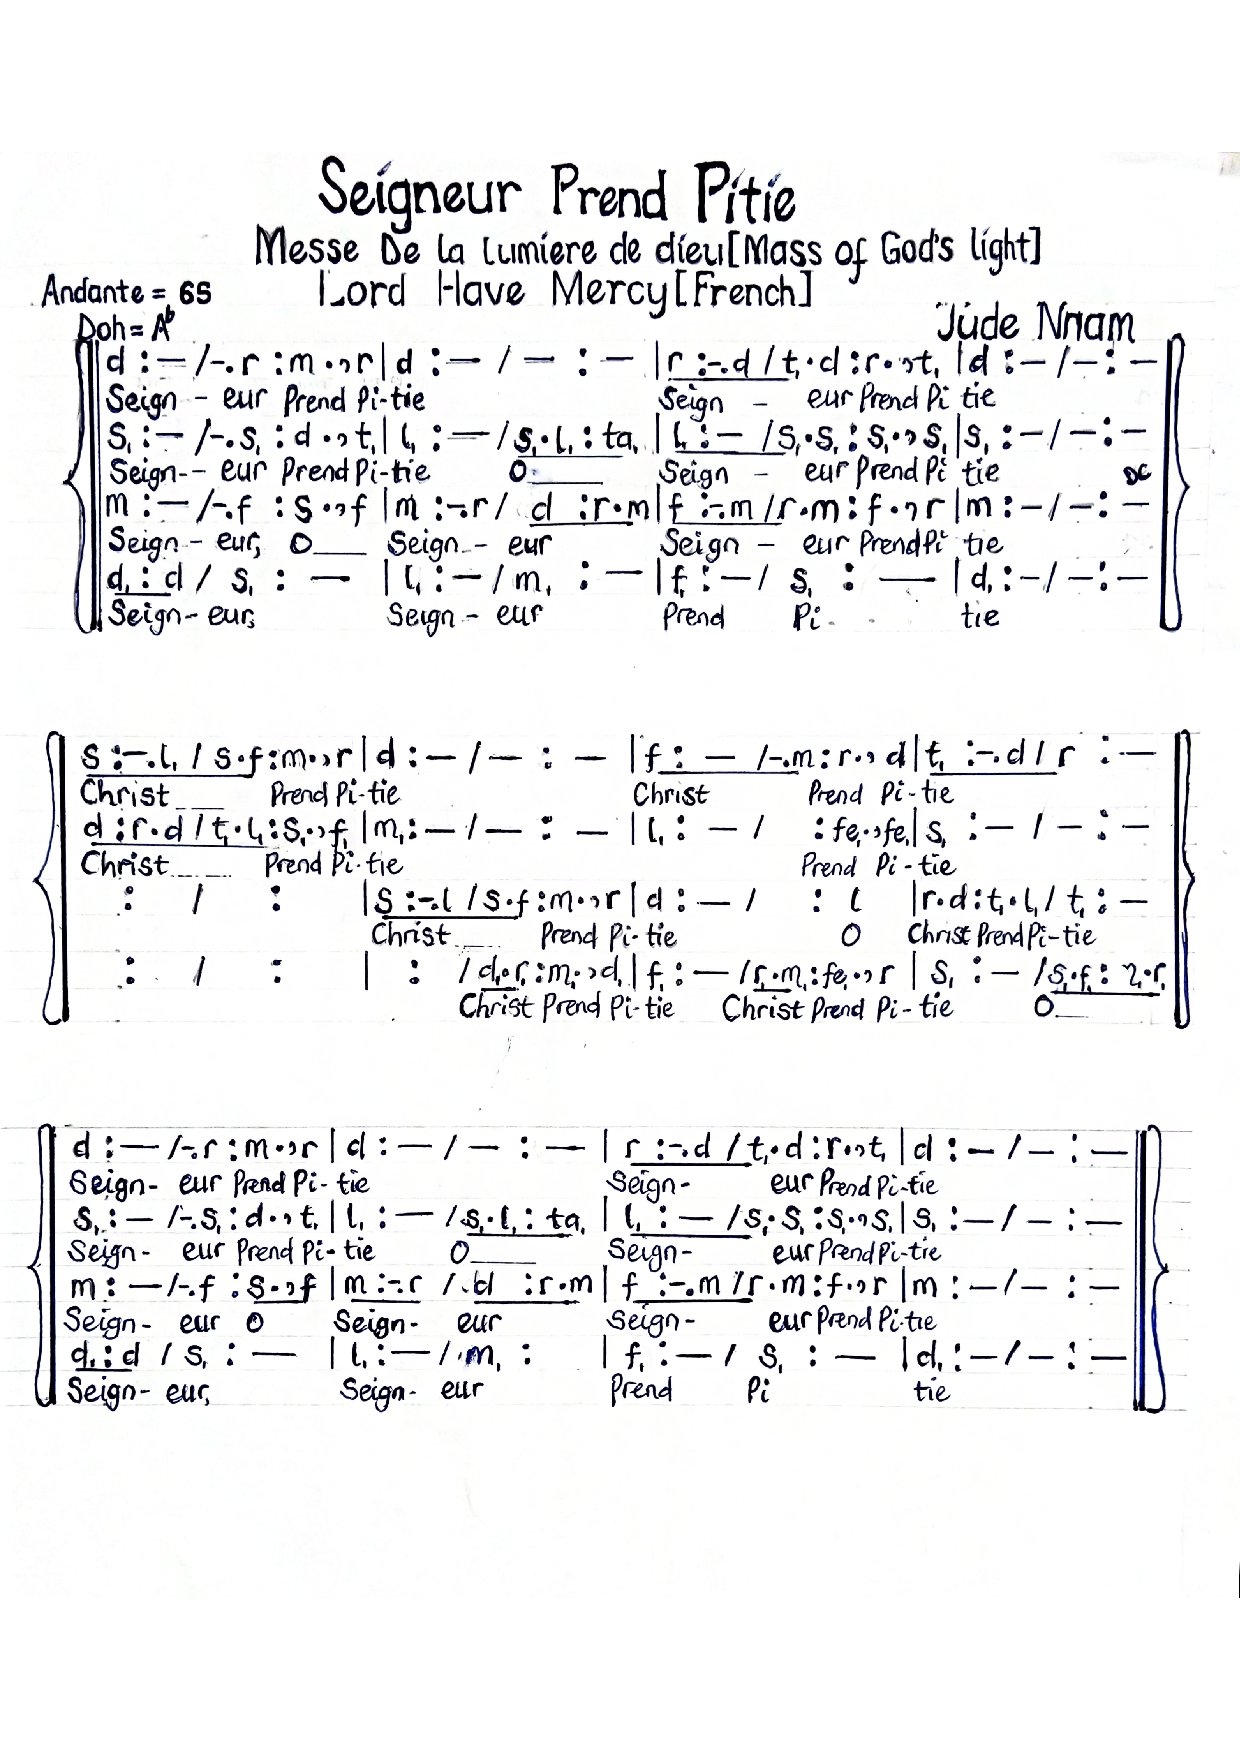 Seigneur Prend Pitie
Messe De la Lumiere de dieu[Mass of God's light]
Andante = 65 Lord Have Mercy[French]
Doh = A♭ Jude Nnam
d :— /-.r :m .,r|d :— / — : — |r :-.d / t,.d :r.,t, |d :—/—: —
Seign - eur Prend Pi-tie Seign - eur Prend Pi tie
s, :— /-.s, :d .,t,|l, :—/s,.l, :ta, |l, :— /s,.s, :s,.,s,|s, :—/—:—
Seign-- eur Prend Pi-tie O___ Seign - eur Prend Pi tie DC
m :— /-.f :s .,f |m :-.r/ d :r.m|f :-.m /r.m:f.,r |m:—/—: —
Seign - eur, O___ Seign - eur Seign - eur Prend Pi tie
d, : d / s, : — |l, :—/m, : —|f, :—/ s, : — |d, :—/—:—
Seign- eur, Seign - eur Prend Pi tie
s :-.l, / s.f:m.,r|d :—/— : — |f : — /-.m:r.,d|t, :-.d/r :—
Christ___ Prend Pi-tie Christ Prend Pi-tie
d :r.d/t,.l,:s,.,f,|m,:—/— : — |l, : —/ :fe,.,fe,|s, :—/—:—
Christ___ Prend Pi-tie Prend Pi-tie
: / : |s :-.l /s.f:m.,r|d :—/ : l |r.d:t,.l,/t, :—
Christ___ Prend Pi-tie O Christ Prend Pi-tie
: / : | : /d,.r,:m,.,d,|f, :—/r,.m,:fe,.,r |s, :—/s,.f, : 2,.r,
Christ Prend Pi-tie Christ Prend Pi-tie O__
d :— /-.r :m.,r|d :—/— : — |r :-.d /t,.d :r.,t, |d :—/—: —
Seign- eur Prend Pi-tie Seign- eur Prend Pi-tie
s, :— /-.s, :d.,t,|l, :— /s,.l, : ta, |l, :— /s,.s, :s,.,s,|s, :—/—: —
Seign- eur Prend Pi-tie O___ Seign- eur Prend Pi-tie
m : —/-.f :s.,f |m :-.r / d :r.m| f :-.m /r.m:f.,r |m :—/—: —
Seign- eur O Seign- eur Seign- eur Prend Pi-tie
d, :d / s, : — |l, :—/m, : |f, :—/ s, : — |d, :—/—:—
Seign- eur, Seign- eur Prend Pi tie